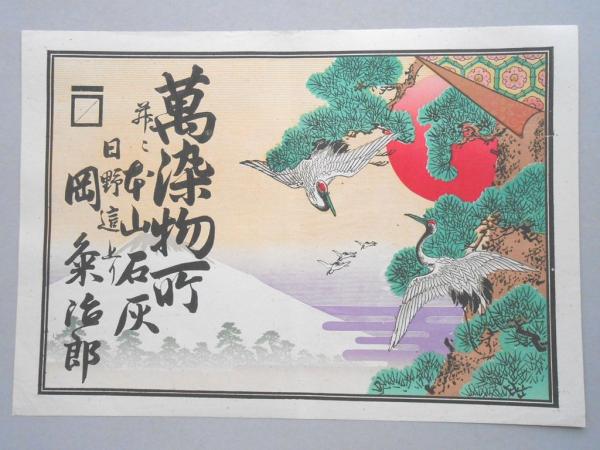 萬染物所
并ニ本山石灰
日野追上り
岡粂治郎